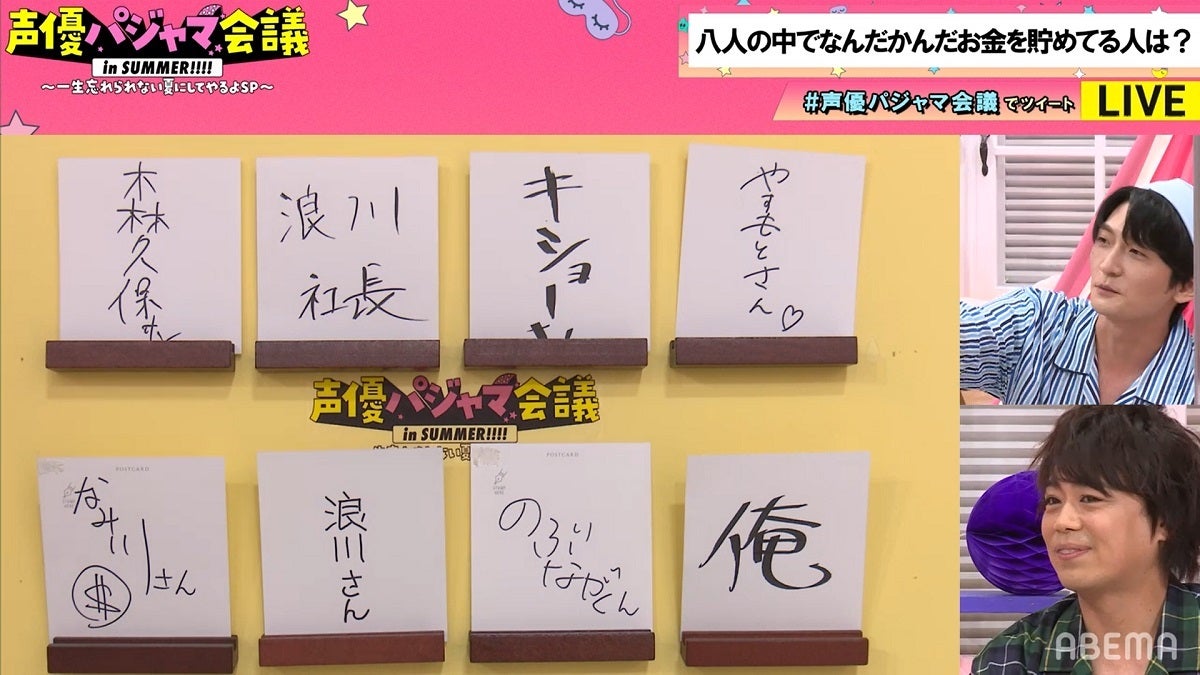 声優パジャマ会議
in SUMMER!!!!
〜一生忘れられない夏にしてやるよSP〜
八人の中でなんだかんだお金を貯めてる人は？
#声優パジャマ会議でツイート
LIVE
森久保サン
浪川
社長
キショー
やすもとさん♡
声優パジャマ会議
in SUMMER!!!!
POSTCARD
なみ川さん
$
浪川さん
POSTCARD
のぶながくん
俺
ABEMA